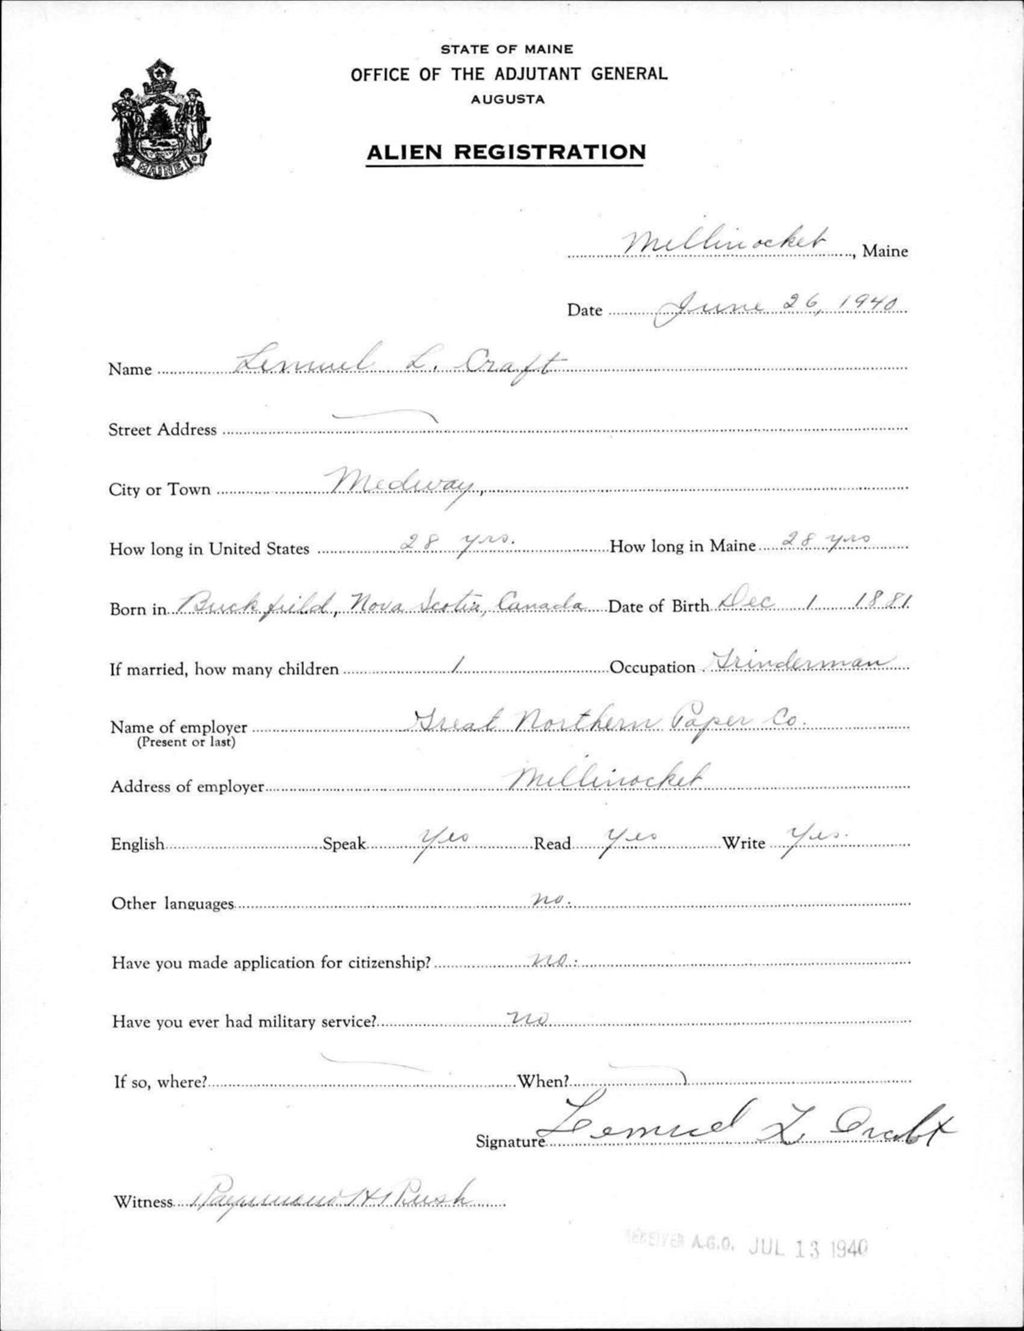 STATE OF MAINE
OFFICE OF THE ADJUTANT GENERAL
AUGUSTA
ALIEN REGISTRATION
MAINE
Millinocket, Maine
Date June 26, 1940
Name Lemuel L. Craft
Street Address
City or Town Medway,
How long in United States 28 yrs. How long in Maine 28 yrs
Born in Buckfield, Nova Scotia, Canada Date of Birth Dec 1 1881
If married, how many children 1 Occupation Grinderman
Name of employer Great Northern Paper Co.
(Present or last)
Address of employer Millinocket
English Speak Yes Read Yes Write Yes.
Other languages no.
Have you made application for citizenship? no.
Have you ever had military service? no
If so, where? When?
Signature Lemuel L Craft
Witness Raymond H Rush
RECEIVED A.G.O. JUL 13 1940